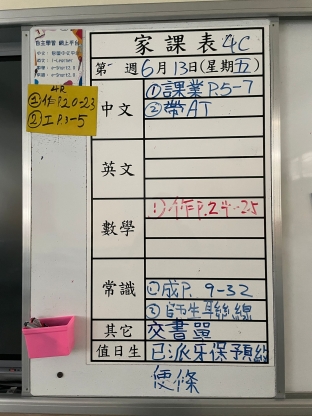 家課表 4C
第 週 6月13日(星期五)
中文
①課業P.5-7
②帶AT
英文
數學
1)作P.24-25
常識
①成P. 9-32
②師生聯線
其它
交書單
值日生
已派牙保預約
便條
自主學習 網上平台
4R
①作P.20-23
②工P.1-5